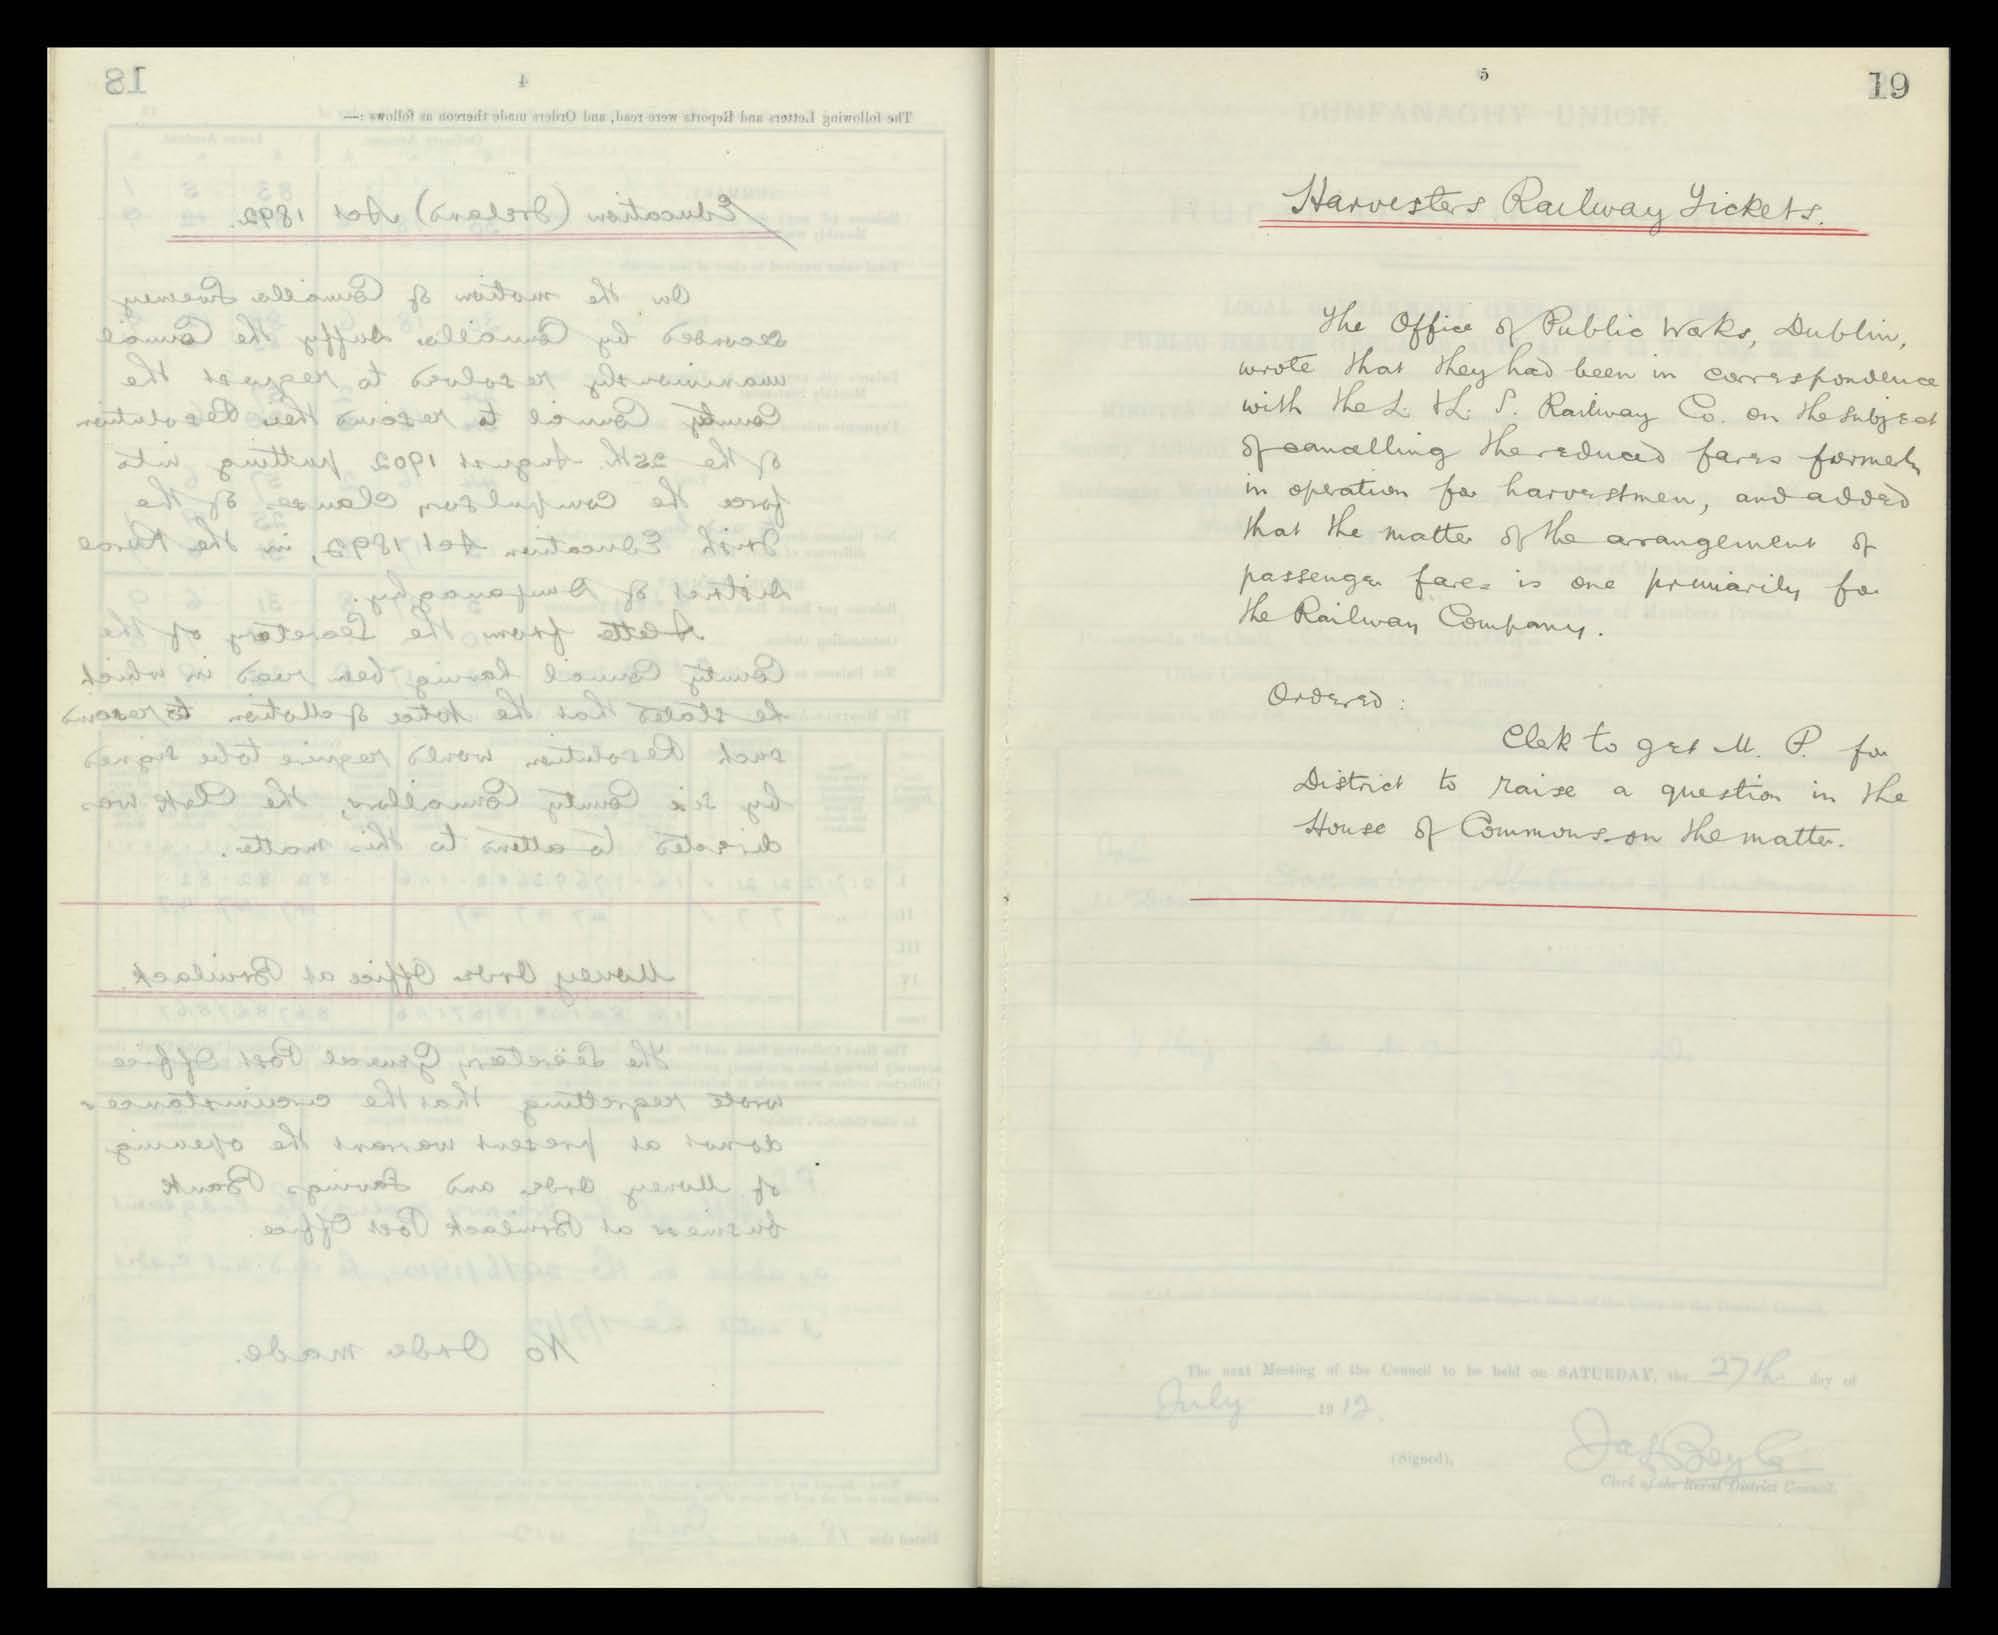 18
4
The following Letters and Reports were read, and Orders made thereon as follows :—
Education (Ireland) Act 1892.
On the motion of Councillor Sweeney
seconded by Councillor Duffy the Council
unanimously resolved to request the
County Council to rescind their Resolution
of the 25th. August 1902 putting into
force the compulsory clauses of the
Irish Education Act 1892, in the Rural
District of Dunfanaghy.
A letter from the Secretary of the
County Council having been read in which
he stated that the notice of Motion to rescind
such Resolution would require to be signed
by six County Councillors, the Clerk was
directed to attend to this matter.
Money Order Office at Brinlack.
The Secretary General Post Office
wrote regretting that the circumstances
do not at present warrant the opening
of Money Order and Savings Bank
business at Brinlack Post Office.
No Order made.
5
19
Harvesters Railway Tickets.
The Office of Public Works, Dublin,
wrote that they had been in correspondence
with the L. & L. S. Railway Co. on the subject
of cancelling the reduced fares formerly
in operation for harvestmen, and added
that the matter of the arrangement of
passenger fares is one primarily for
the Railway Company.
Ordered :
Clerk to get M. P. for
District to raise a question in the
House of Commons on the matter.
The next Meeting of the Council to be held on SATURDAY, the 27th day of
July 1912.
(Signed),
Jas Boyle
Clerk of the Rural District Council.